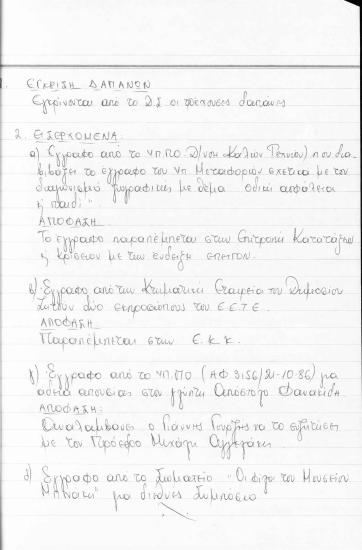 1. ΕΓΚΡΙΣΗ ΔΑΠΑΝΩΝ
Εγκρίνονται από το Δ.Σ οι τρέχουσες δαπάνες
2. ΕΙΣΕΡΧΟΜΕΝΑ.
α) Εγγραφο από το ΥΠ.ΠΟ. Δ/νση Καλών Τεχνών) που δια-
βιβάζει το έγγραφο του Υπ. Μεταφορών σχετικά με τον
διαγωνισμό ζωγραφικής με θέμα οδική ασφάλεια
και παιδί".
ΑΠΟΦΑΣΗ
Το έγγραφο παραπέμπεται στην Επιτροπή Κατατάξεως
και Κρίσεων με την ένδειξη επείγον.
β) Εγγραφο από την Κτηματική Εταιρεία του Δημοσίου
Ζητούν δύο εκπροσώπους του Ε.Ε.Τ.Ε.
ΑΠΟΦΑΣΗ
Παραπέμπεται στην Ε.Κ.Κ.
γ) Εγγραφο από το ΥΠ.ΠΟ (ΑΦ 3156/21-10-86) για
άδεια απουσίας στον γλύπτη Απόστολο Φανακίδη
ΑΠΟΦΑΣΗ:
Αναλαμβάνει ο Γιάννης Γουρζής να το συζητήσει
με τον Πρόεδρο Μιχάλη
δ) Εγγραφο από το Σωματείο "Οι φίλοι του Μουσείου
Μπενάκη" για διεθνές Συμπόσιο